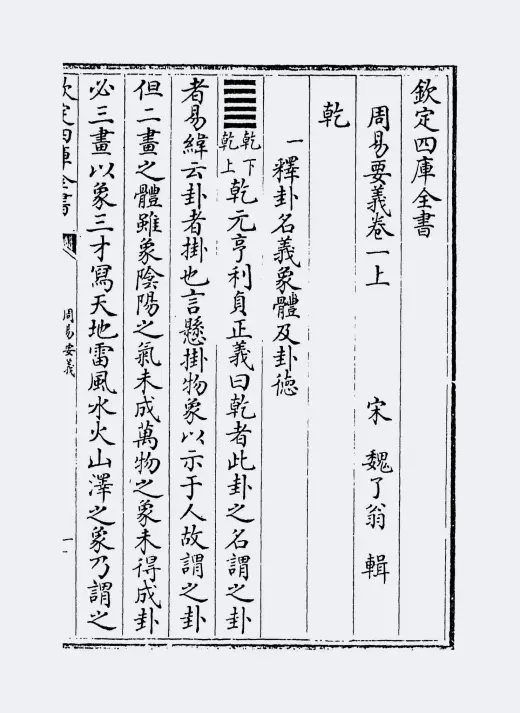 欽定四庫全書
周易要義卷一上 宋 魏了翁 輯
乾
一釋卦名義象體及卦德
乾下乾上乾元亨利貞正義曰乾者此卦之名謂之卦
者易緯云卦者掛也言懸掛物象以示于人故謂之卦
但二畫之體雖象陰陽之氣未成萬物之象未得成卦
必三畫以象三才寫天地雷風水火山澤之象乃謂之
欽定四庫全書
周易要義
一